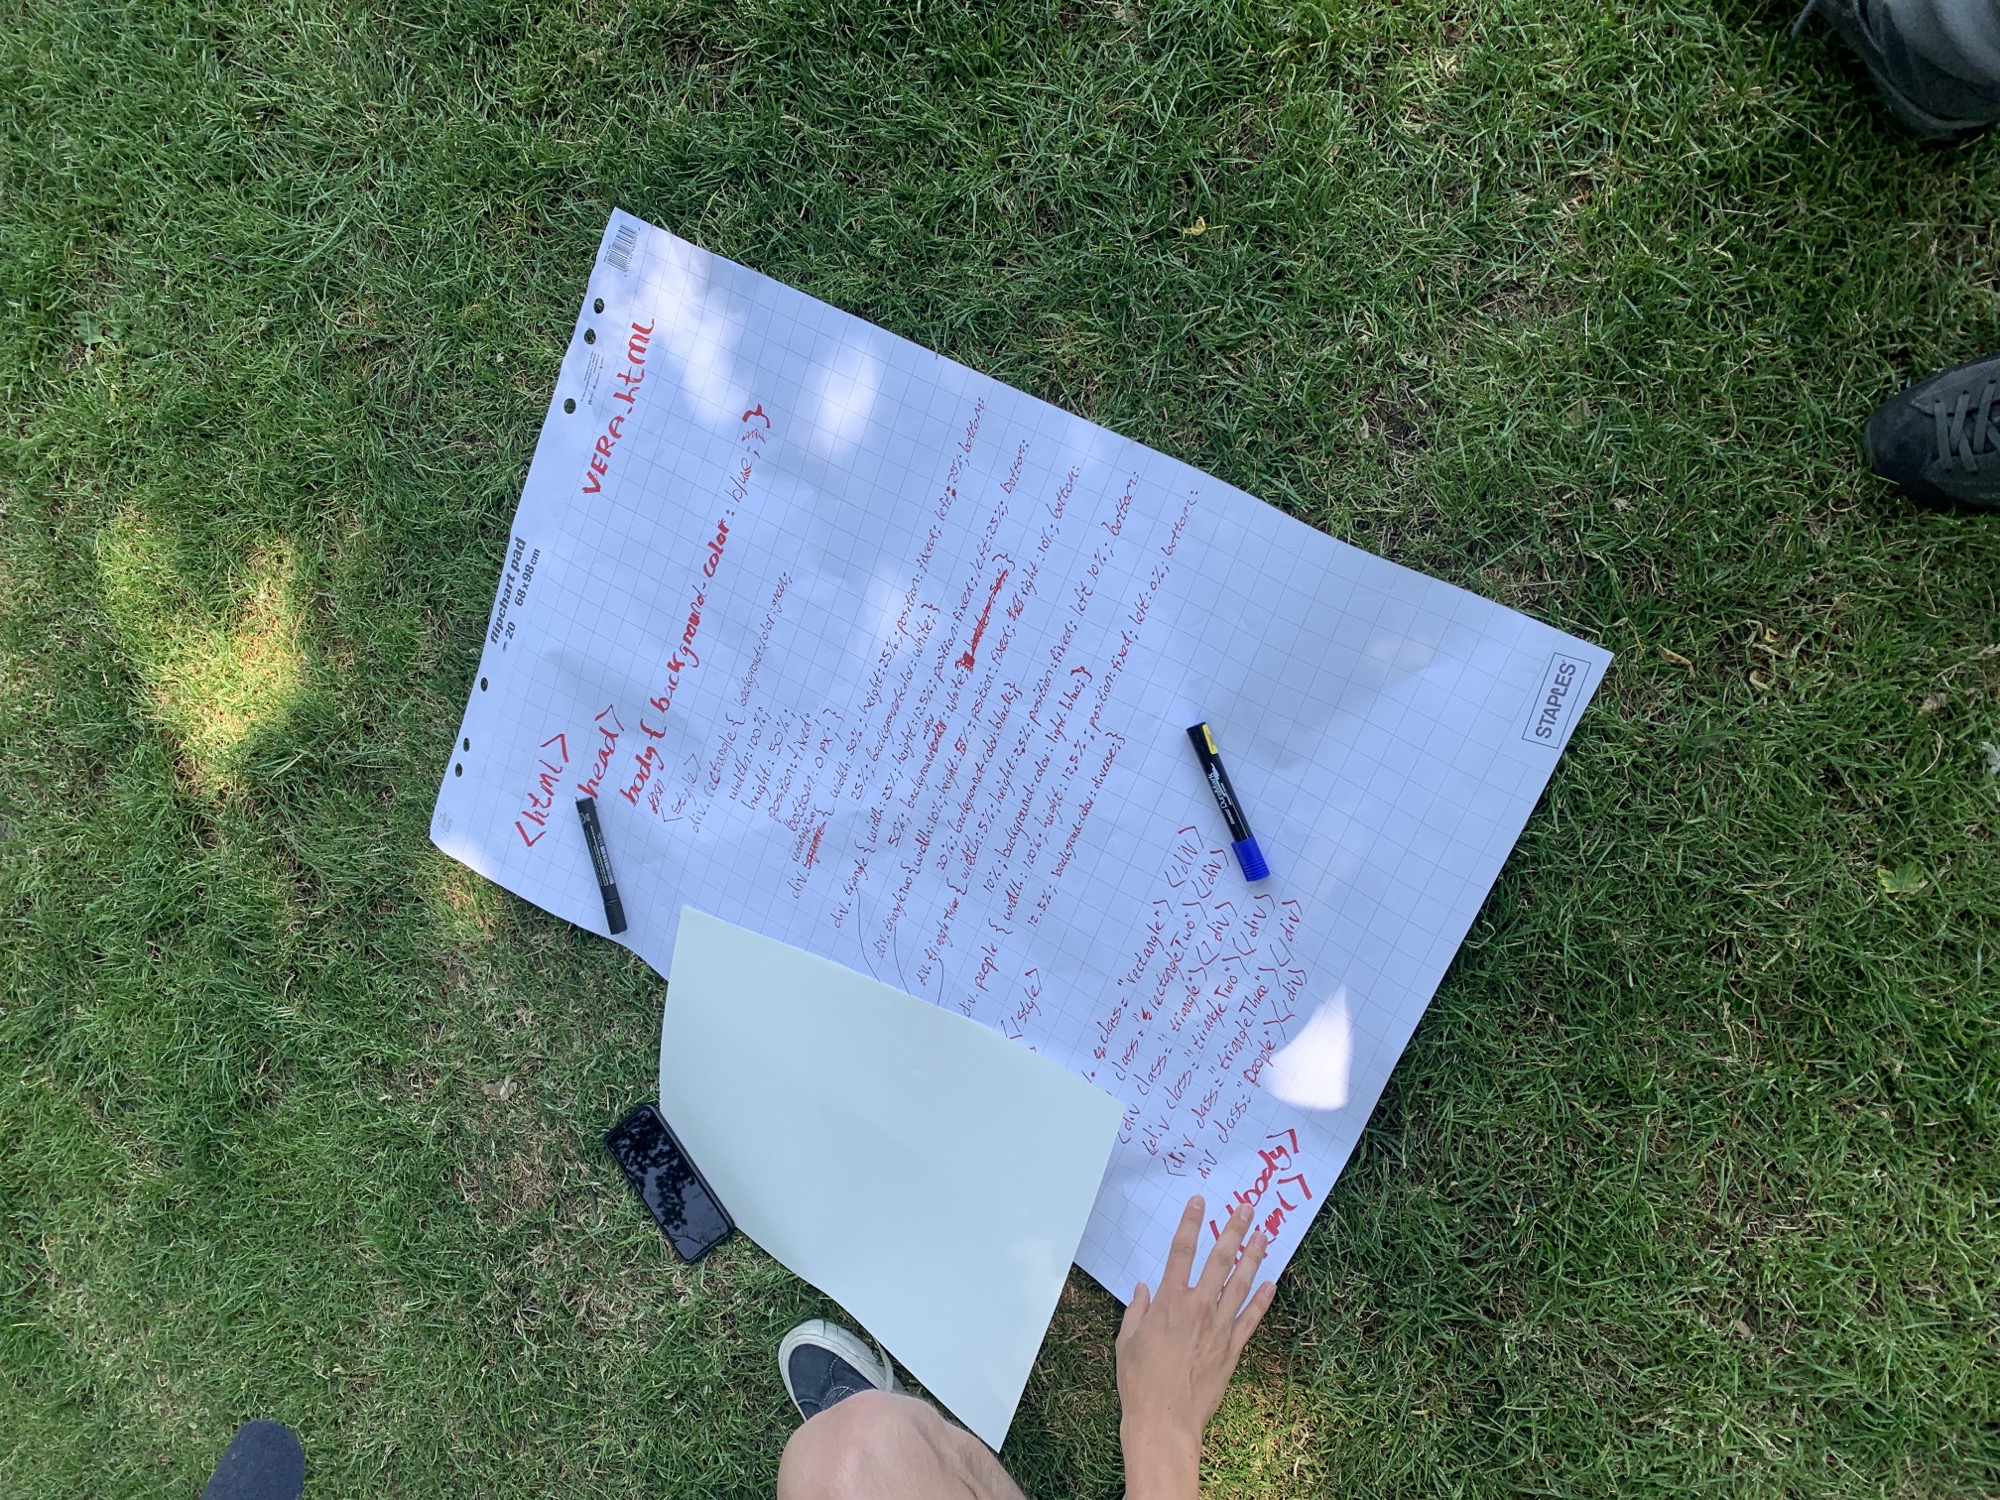 flipchart pad
20 68x98cm
<html>
VERA.html
head>
body { background-color: blue; }
<style>
div. rectangle { background-color: green;
width: 100%;
height: 50%;
position: fixed;
bottom: 0px; }
rectangleTwo
div. square { width: 50%; height: 25%; position: fixed; left: 25%; bottom:
25%; background-color: white; }
div. triangle { width: 25%; height: 12.5%; position: fixed; left: 25%; bottom:
50%; background-color: white; }
div. triangleTwo { width: 10%; height: 5%; position: fixed; right: 10%; bottom:
20%; background-color: black; }
div. triangleThree { width: 5%; height: 2.5%; position: fixed; left 10%; bottom:
10%; background-color: light-blue; }
div. people { width: 100%; height: 12.5%; position: fixed; left: 0%; bottom:
12.5%; background-color: diverse; }
</style>
class="rectangle"> </div>
class="rectangleTwo"> </div>
<div class="triangle"></div>
<div class="triangleTwo"></div>
<div class="triangleThree"></div>
div class="people"></div>
</body>
html>
DuraMark
STAPLES